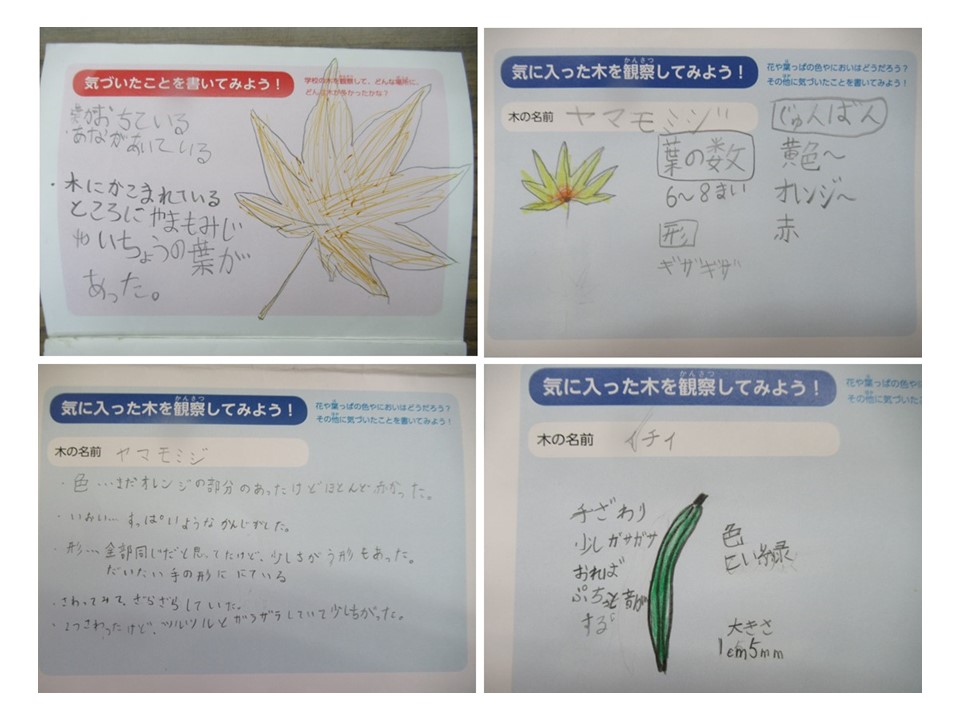 気づいたことを書いてみよう！
学校の木を観察して、どんな場所に、
どんな木が多かったかな？
葉がおちている
・あながあいている
・木にかこまれている
ところにやまもみじ
やいちょうの葉が
あった。
気に入った木を観察してみよう！
かんさつ
花や葉っぱの色やにおいはどうだろう？
その他に気づいたことを書いてみよう！
木の名前 ヤマモミジ
葉の数
6〜8まい
形
ギザギザ
じゅんばん
黄色〜
オレンジ〜
赤
気に入った木を観察してみよう！
かんさつ
花や葉っぱの色やにおいはどうだろう？
その他に気づいたことを書いてみよう！
木の名前 ヤマモミジ
・色…まだオレンジの部分のあったけどほとんど赤かった。
・におい…すっぱいようなかんじがした。
・形…全部同じだと思ってたけど、少しちがう形もあった。
だいたい手の形ににている
・さわってみて、ざらざらしていた。
・2つさわったけど、ツルツルとガラザラしていて少しちがった。
気に入った木を観察してみよう！
かんさつ
花や葉っぱの色やに
その他に気づいたこ
木の名前 イチイ
手ざわり
少しガサガサ
おれば
ぷちっと音が
する
色
こい緑
大きさ
1cm5mm